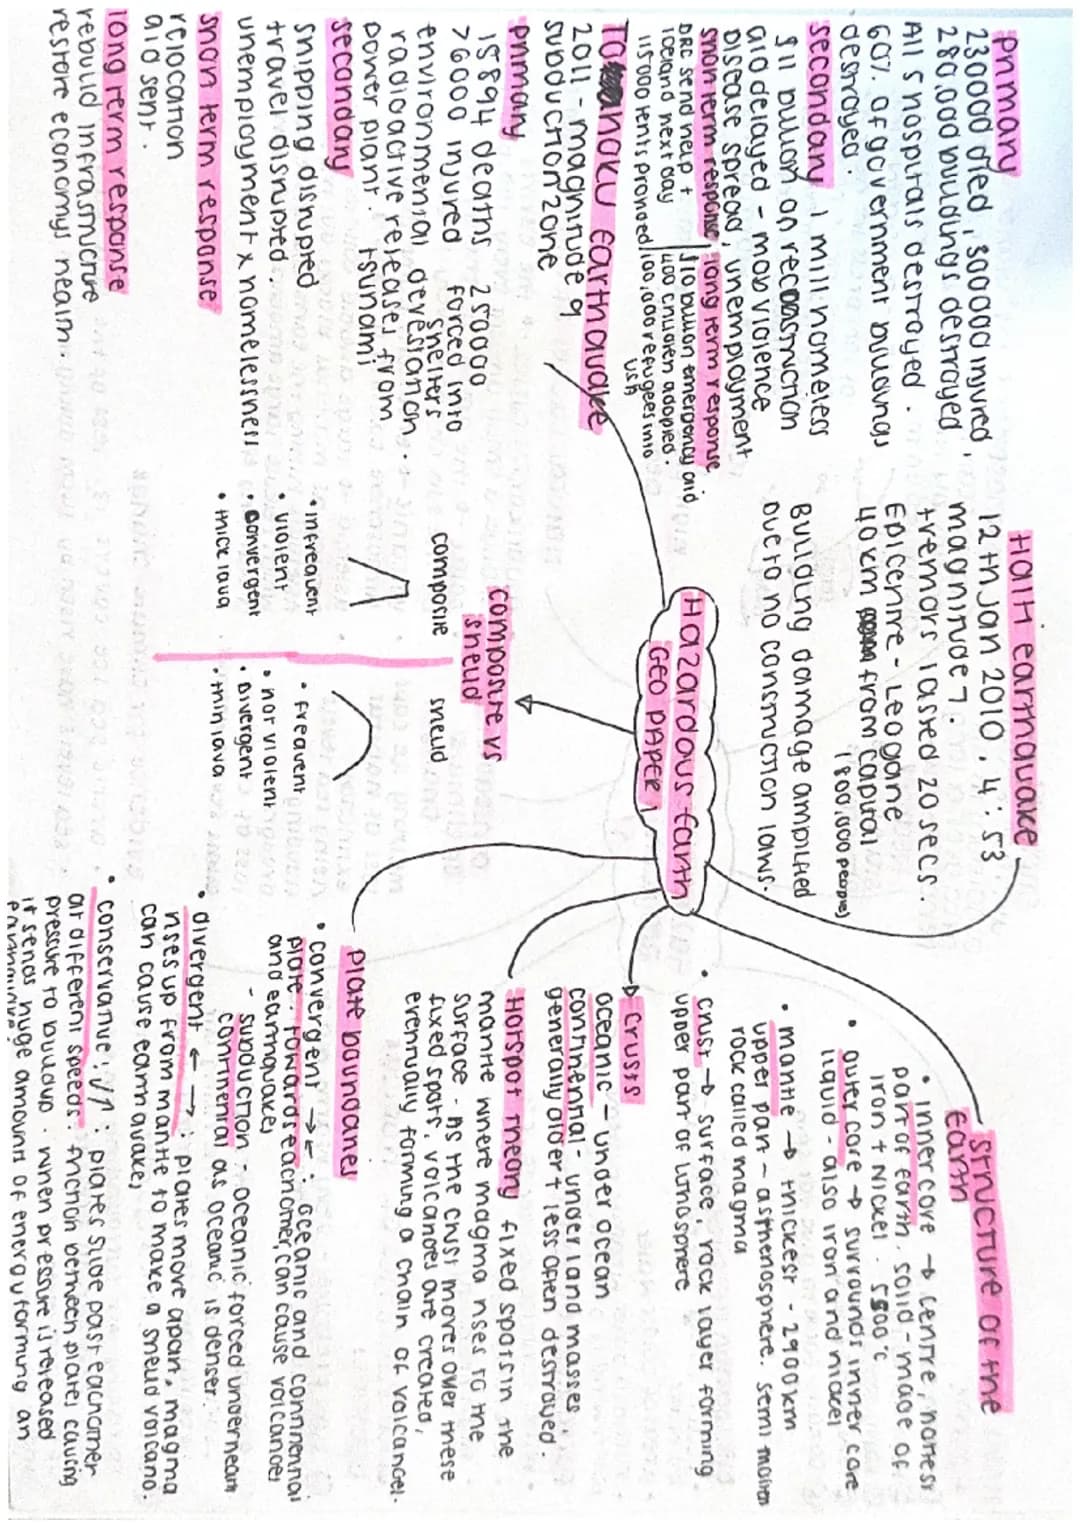 Hazardous Earth
GEO PAPER 1
Haiti earthquake
12th Jan 2010. 4:53
magnitude 7.
tremors lasted 20 secs.
Epicentre - Leogane
40km from capital
(800,000 people)
Building damage amplified
due to no construction laws.
primary
230000 died, 300000 injured,
280,000 buildings destroyed
All 5 hospitals destroyed.
60% of government buildings
destroyed.
secondary 1 mill homeless
$11 billion on reconstruction
aid delayed - mob violence
Disease spread, unemployment
short term response
DRC send help +
Iceland next day
115000 tents provided
long term response
$10 billion emergency aid
400 children adopted.
100,000 refugees into
USA
Tohoku Earthquake
2011 - magnitude 9
subduction zone
primary
15894 deaths 25000
>6000 injured forced into
shelters
environmental devestation.
radioactive releases from
power plant. tsunami
secondary
shipping disrupted
travel disrupted.
unemployment x homelessness
short term response
relocation
aid sent.
long term response
rebuild infrastructure
restore economy health.
composite vs
sheild
composite
• infrequent
• violent
• convergent
• thick lava
sheild
• frequent
• not violent
• divergent
• thin lava
structure of the
earth
• inner core → centre, hottest
part of earth. solid - made of
iron + nickel. 5500°c
• outer core → surrounds inner core
liquid - also iron and nickel
• mantle → thickest - 2900km
upper part - asthenosphere. semi molten
rock called magma
• crust → surface, rock layer forming
upper part of lithosphere
crusts
oceanic - under ocean
continental - under land masses,
generally older + less often destroyed.
Hotspot theory fixed spots in the
mantle where magma rises to the
surface - As the crust moves over these
fixed spots, volcanoes are created,
eventually forming a chain of volcanoes.
plate boundaries
• convergent →←: oceanic and continental
plate. towards eachother, can cause volcanoes
and earthquakes
- subduction - oceanic forced underneath
continental as oceanic is denser.
• divergent ← →: plates move apart, magma
rises up from mantle to make a sheild volcano.
can cause earthquakes
• conservative: plates slide past eachother
at different speeds. friction between plates causing
pressure to buildup. when pressure is released
it sends huge amounts of energy forming an
earthquake